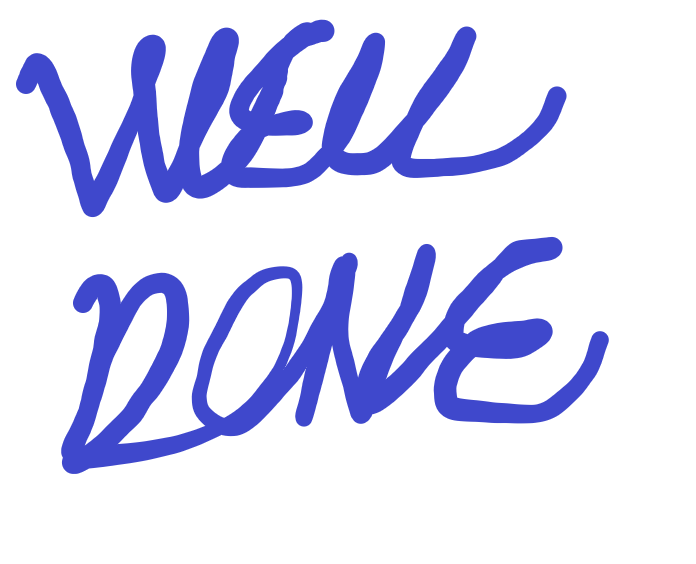 WELL
DONE